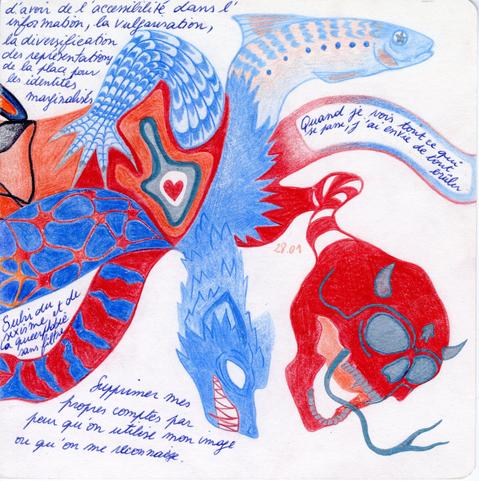 d'avoir de l'accessibilité dans l'
information, la vulgarisation,
la diversification
des représentations
de la place pour
les identités
marginalisés
Quand je vois tout ce qui
se passe, j'ai envie de tout
brûler
28.01
Subi du x de
sexisme et
la queerphobie
sans filtre
Supprimer mes
propres comptes par
peur qu'on utilise mon image
ou qu'on me reconnaisse.